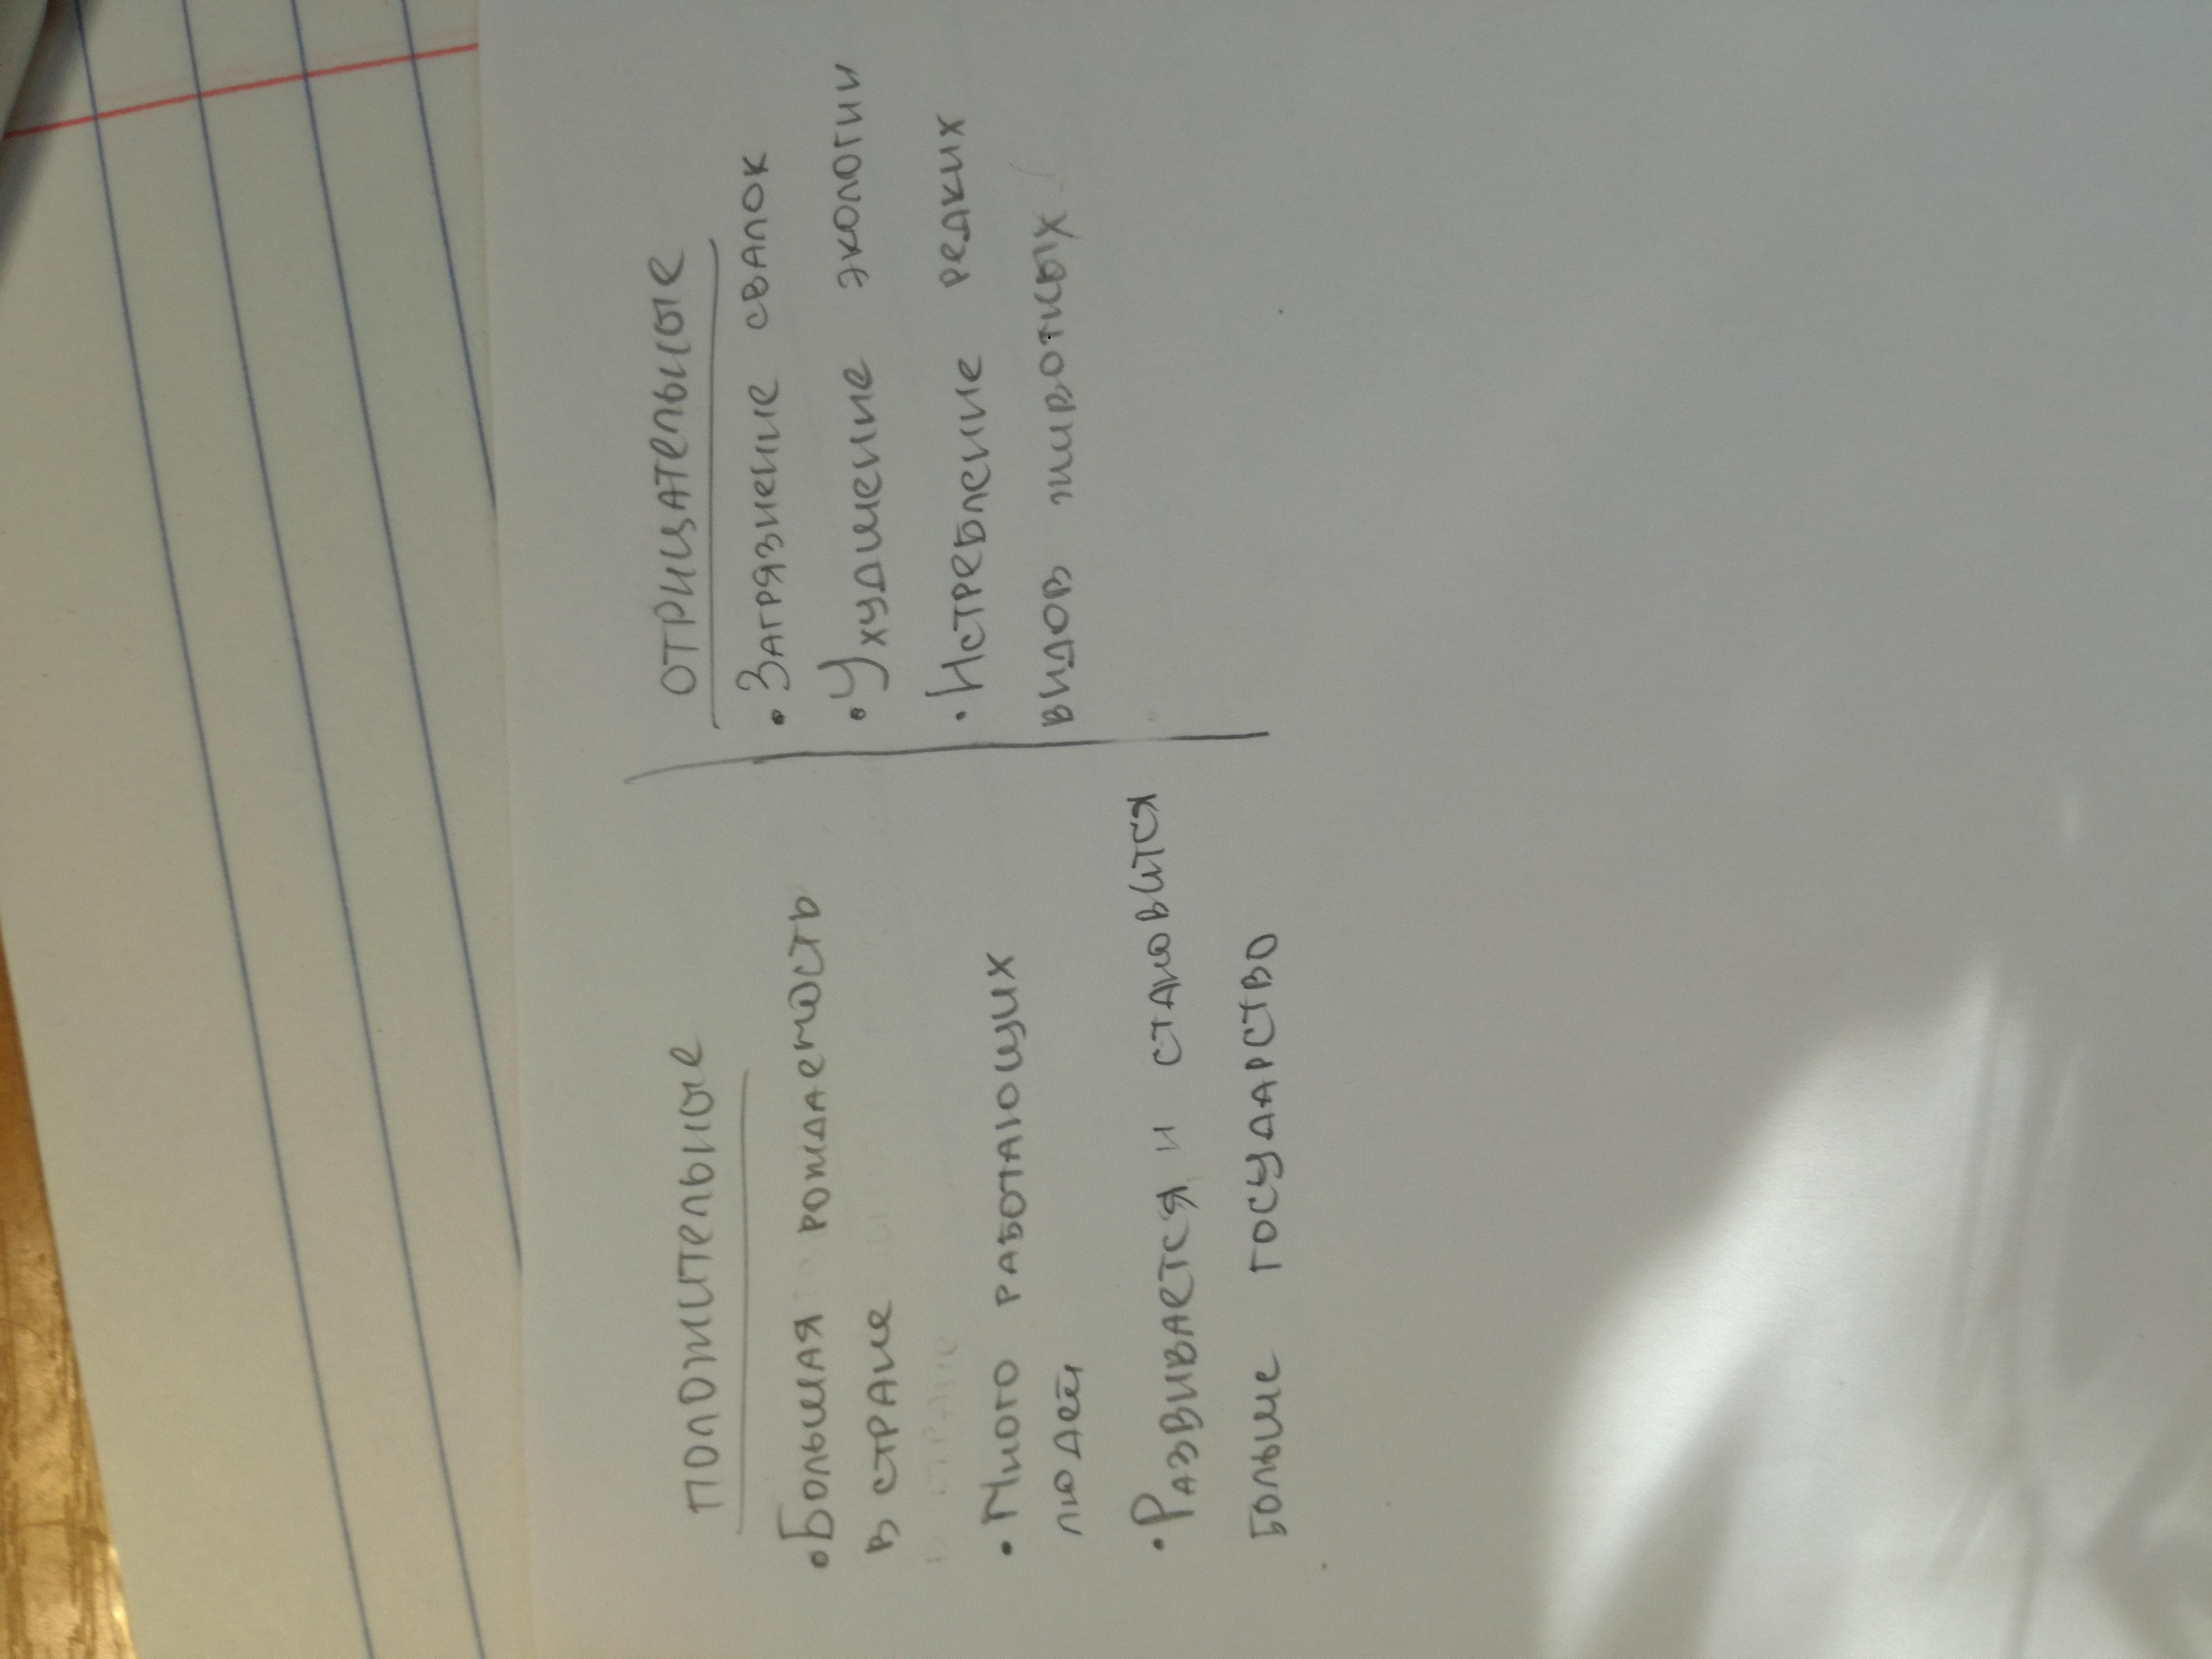 ПОЛОЖИТЕЛЬНЫЕ
• Большая рождаемость
в стране
• Много работающих
людей
• Развивается и становится
больше государство
ОТРИЦАТЕЛЬНЫЕ
• Загрязнение свалок
• Ухудшение экологии
• Истребление редких
видов животных